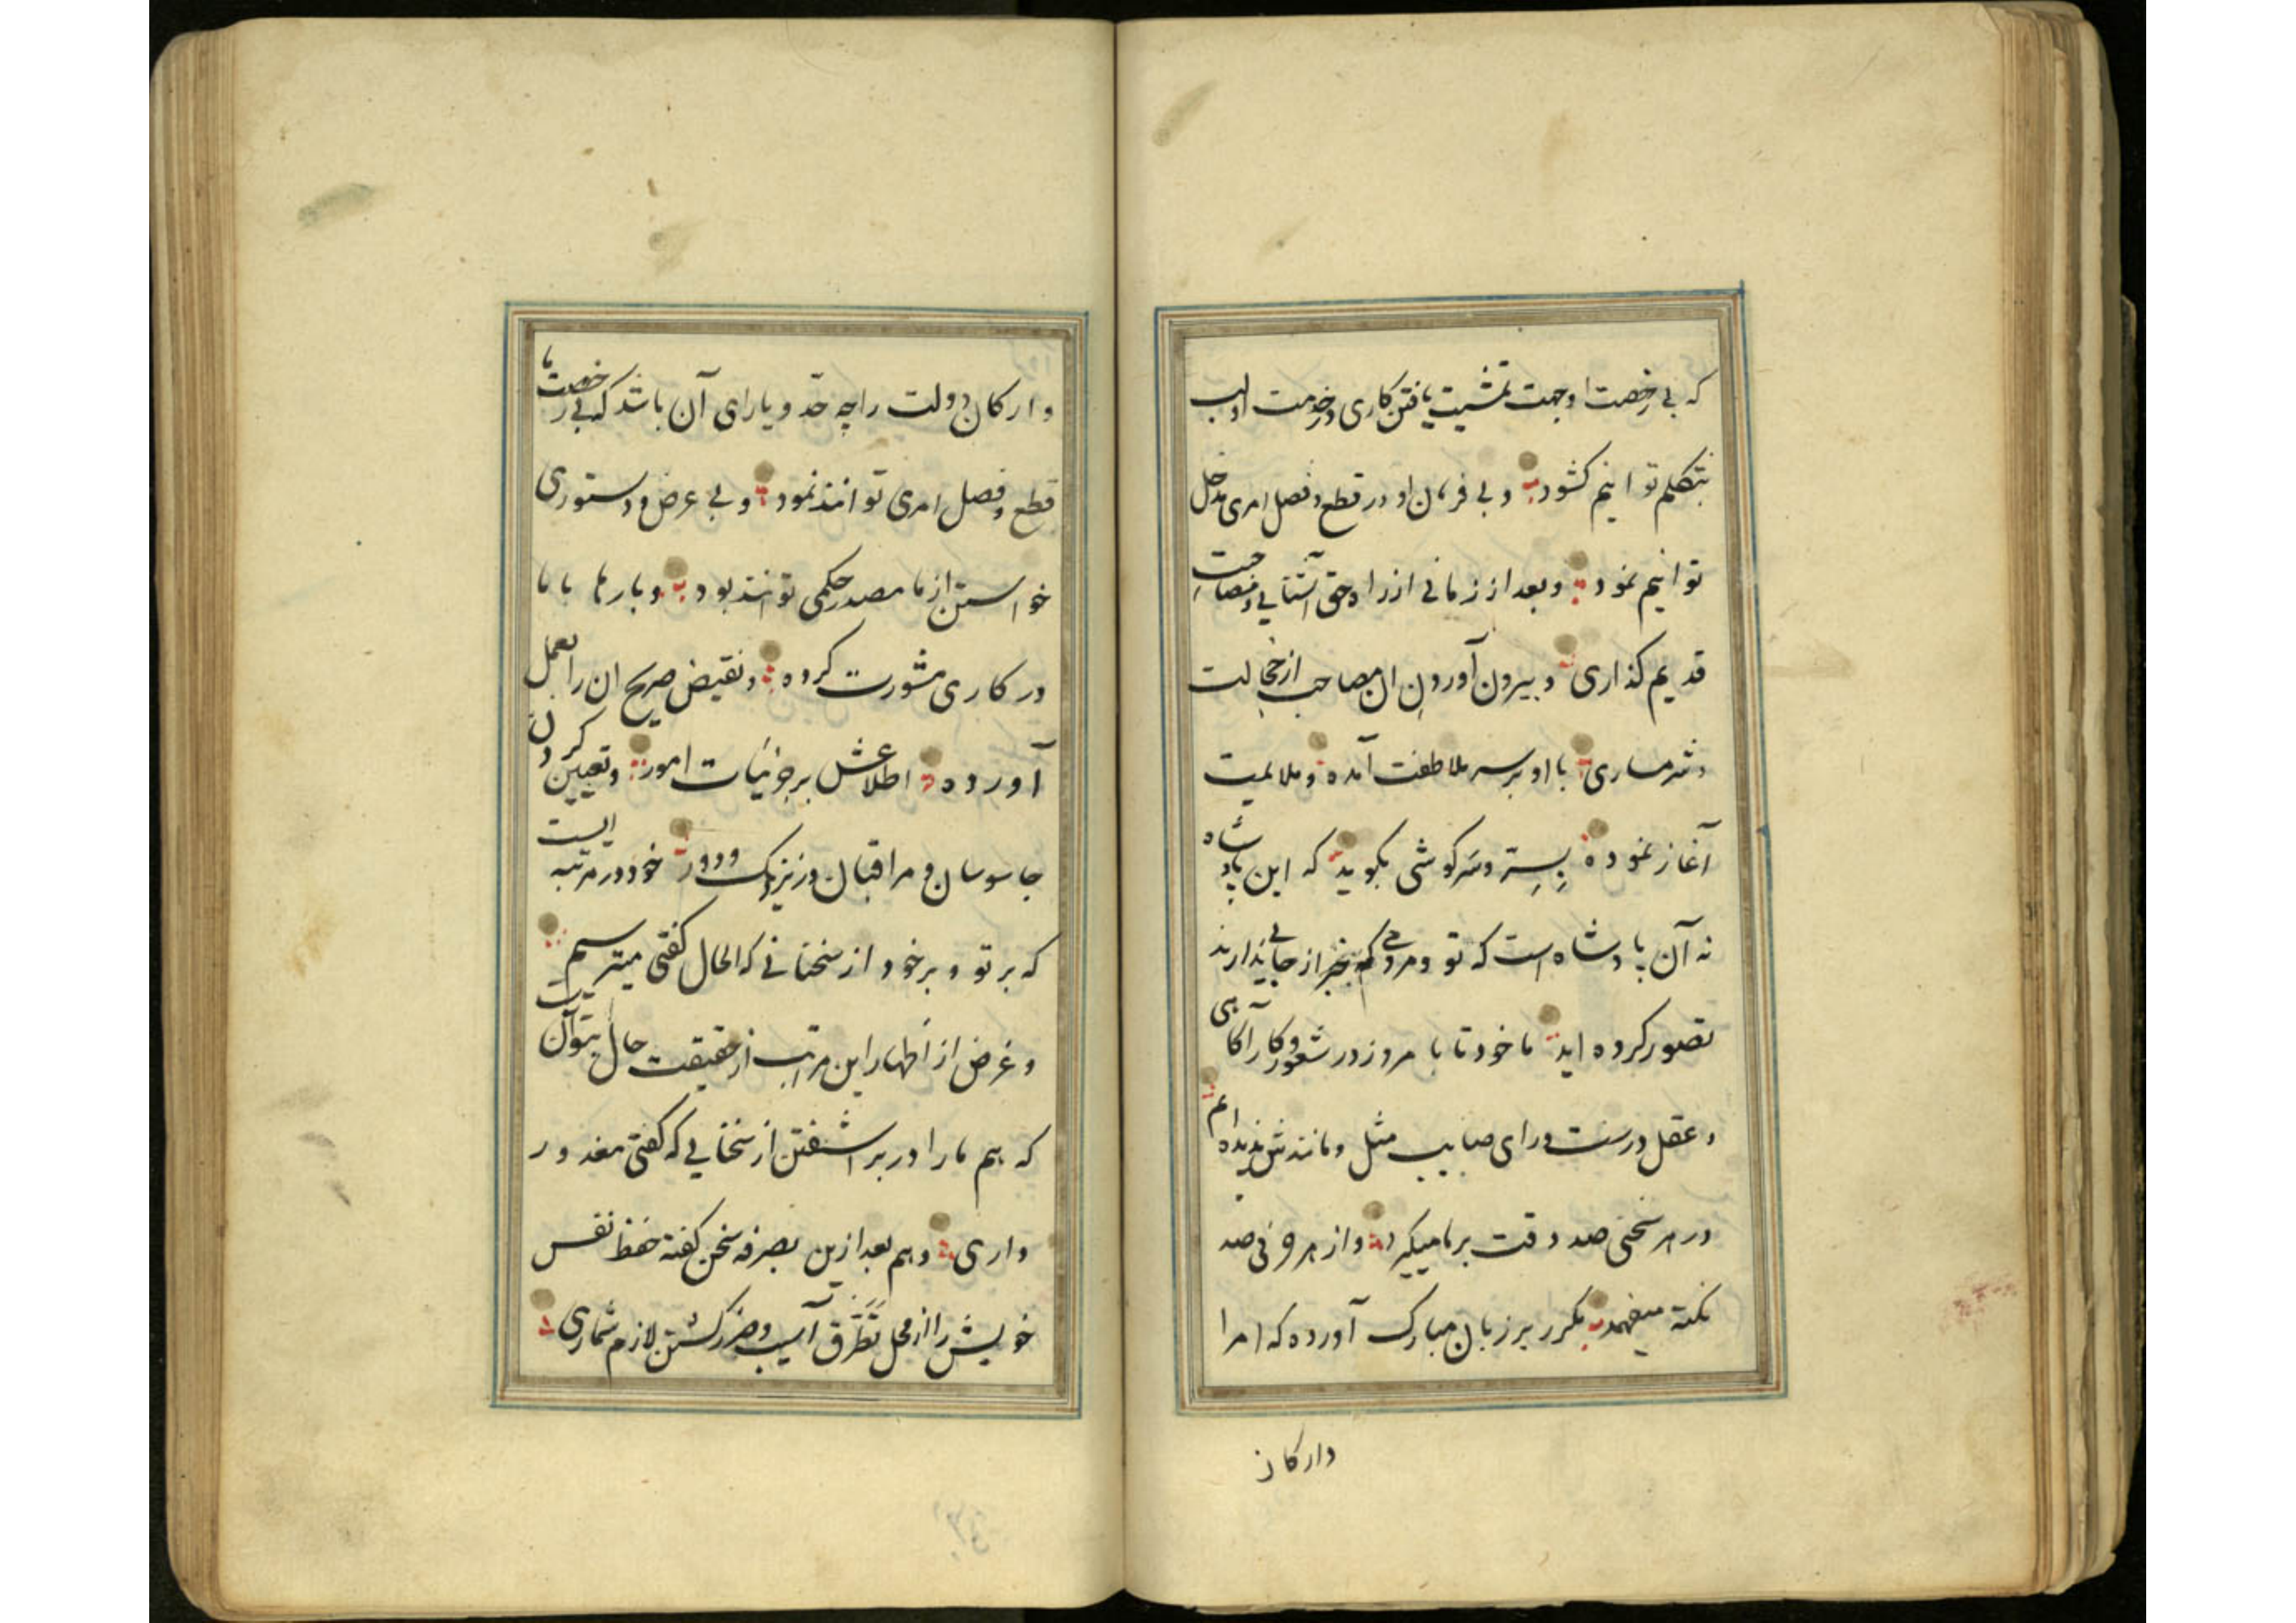 که بی رخصت او جهت تمشیت یافتن کاری در خدمت او لب
بتکلم توانیم کشود و بی فرمان او در قطع و فصل امری مدخل
توانیم نمود و بعد از زمانی از راه حق آشنایی و مصاحبت
قدیم گذاری و بیرون آوردن ان مصاحب از خجالت
و شرمساری با او بر سر ملاطفت آمده و ملایمت
آغاز نموده بسته و سرکوشی بکوید که این پادشاه
نه آن پادشاه است که تو و مردم بیخبر از جایی ندارند
تصور کرده اید ما خود تا بامروز در شعور و کارآکاهی
و عقل درست و رای صایب مثل و مانندش ندیده ام
در هر سخنی صد دقت بر ما میکیرد و از هر حرفی صد
نکته میفهمد مکرر بر زبان مبارک آورده که امرا
وارکان
وارکان دولت را چه حد و یارای آن باشد که بی رخصت ما
قطع و فصل امری توانند نمود و بی عرض و دستوری
خواستن از ما مصدر حکمی توانند بود و بارها با ما
در کاری مشورت کرده و نقیض صریح ان را بعمل
آورده اطلاعش بر جزئیات امور و تعیین کردن
جاسوسان و مراقبان در نزدیک و دور خود در مرتبه ایست
که بر تو و بر خود از سخنانی که الحال کفتی میترسم
و غرض از اظهار این مراتب از حقیقت حال بتو آن
که هم ما را در بر اشفتن از سخنانی که کفتی معذور
داری و هم بعد ازین بصرفه سخن کفته حفظ نفس
خویش را از محل تطرق آسیب و ضرر کشتن لازم شماری